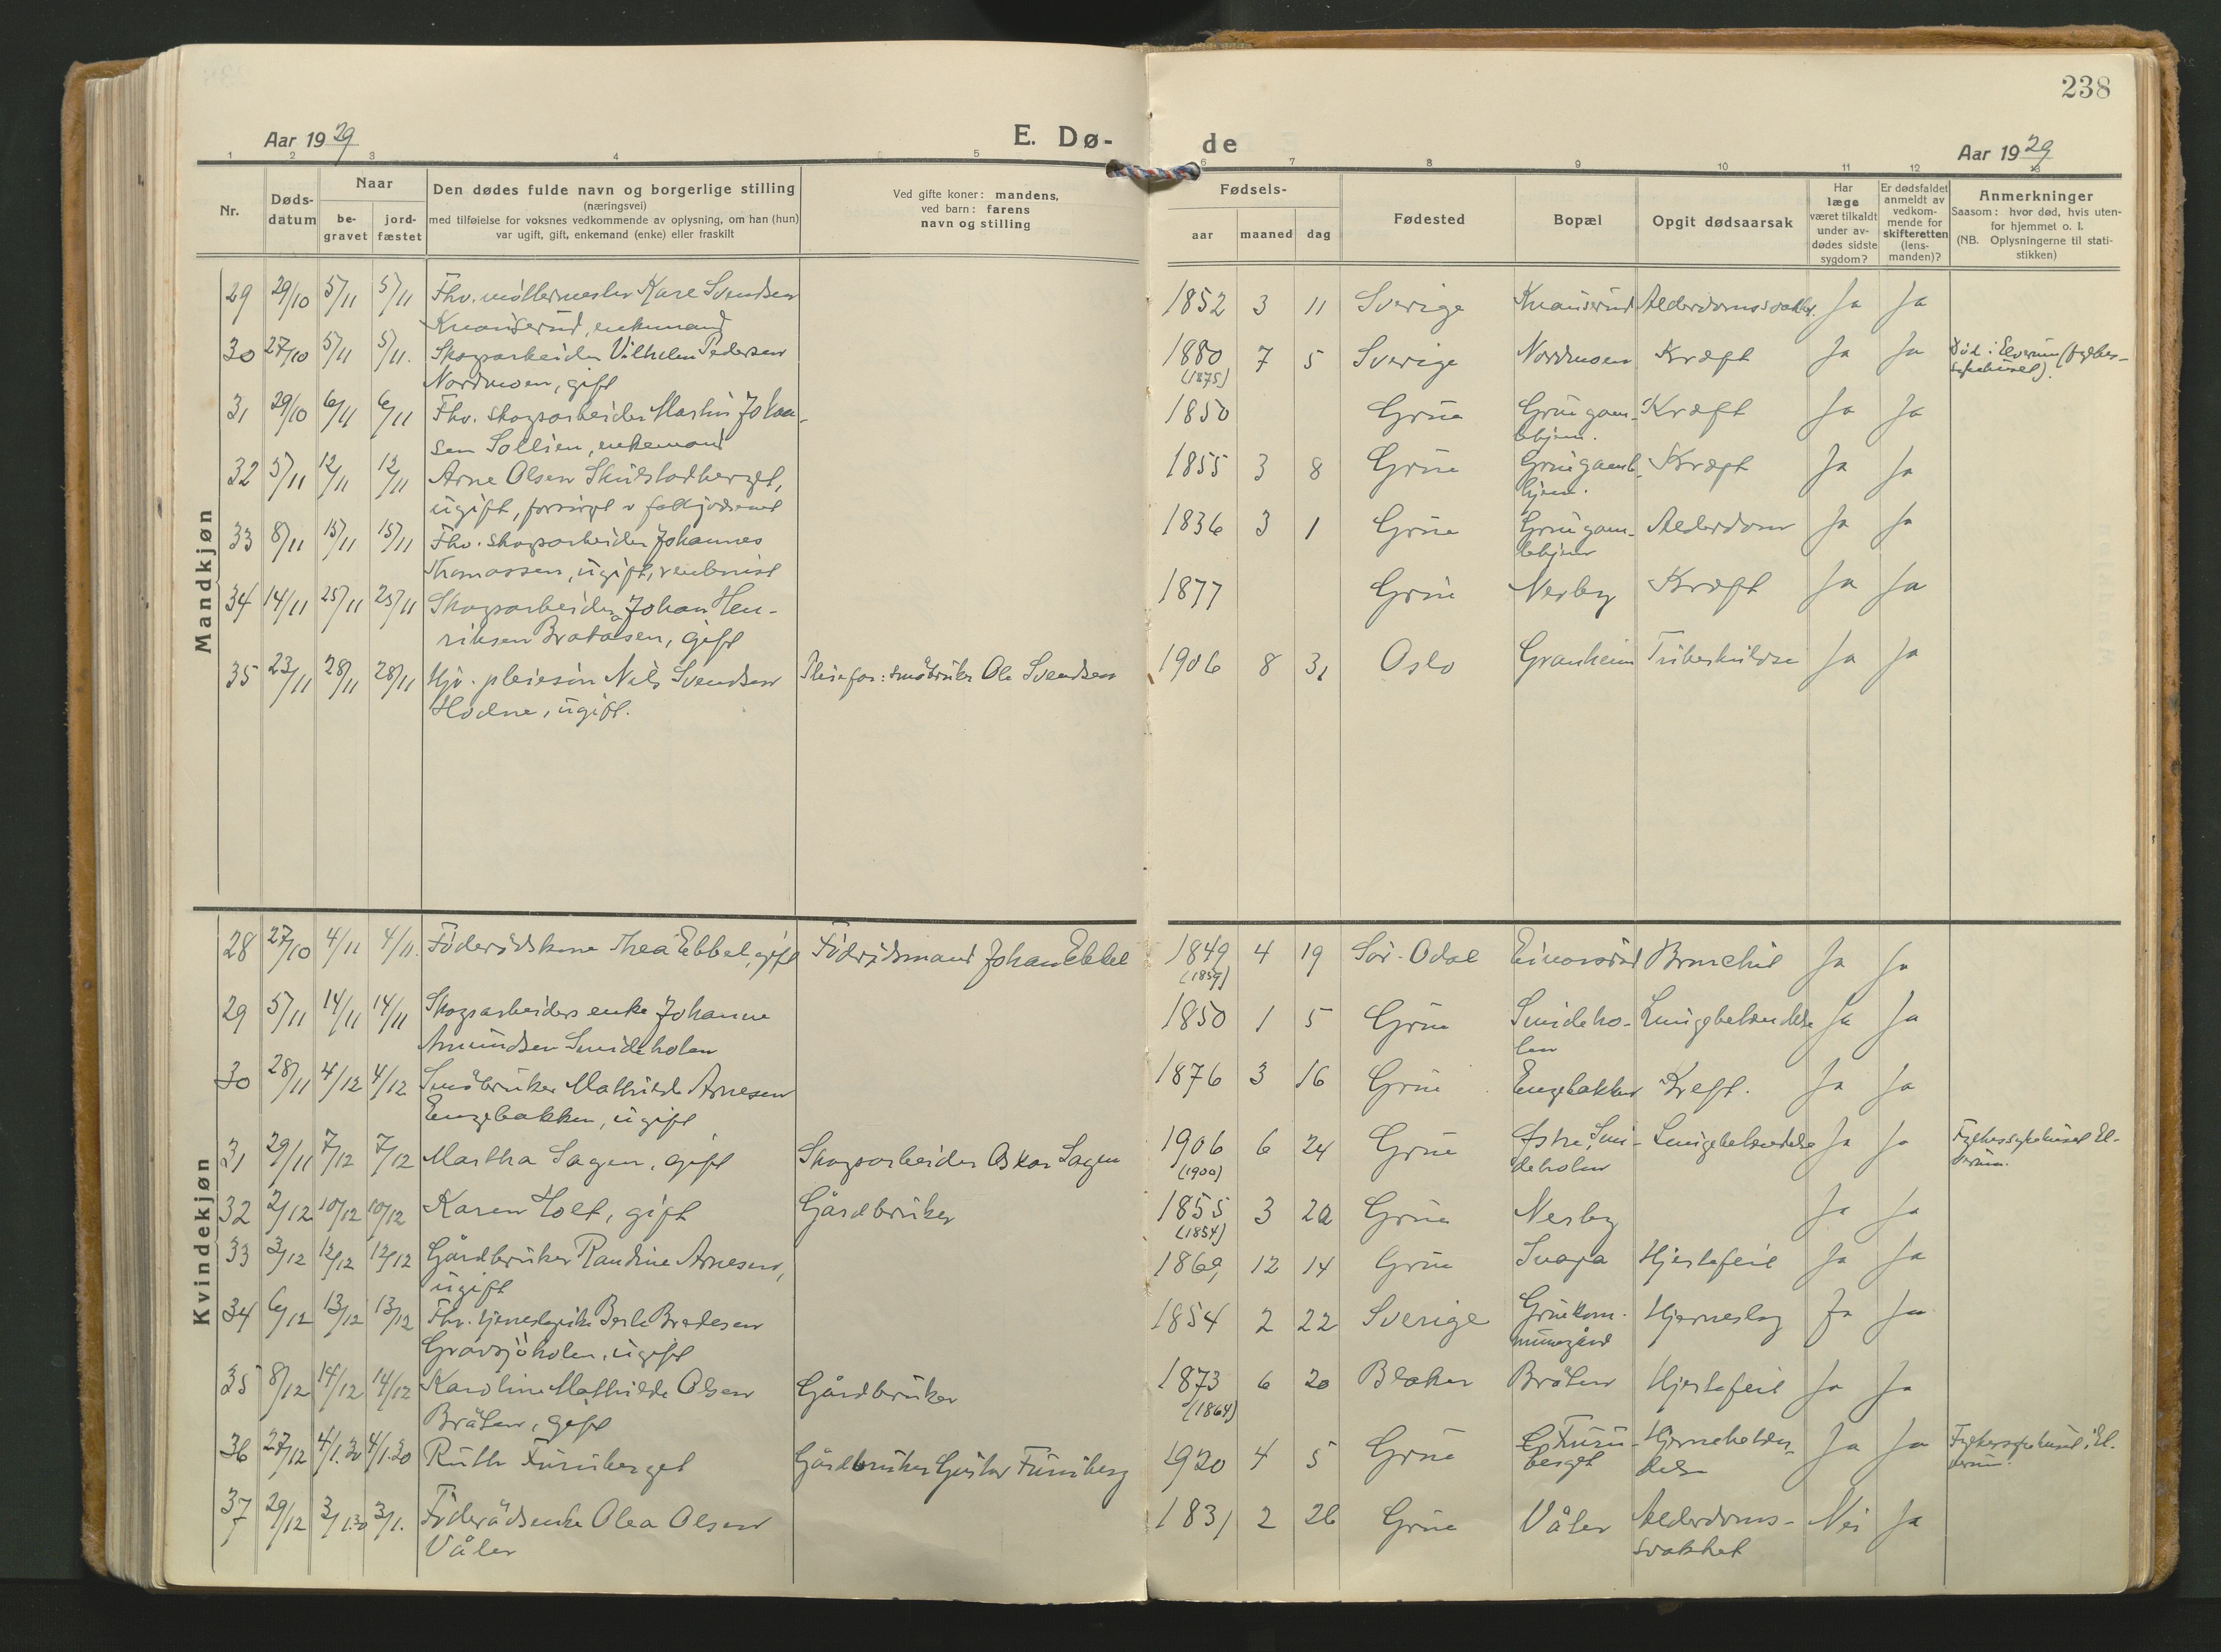 238
Aar 1929
E. Dø-
de
Aar 1929
1 2 3 4 5 6 7 8 9 10 11 12 13
Nr.
Døds-
datum
Naar
be-
gravet
jord-
fæstet
Den dødes fulde navn og borgerlige stilling
(næringsvei)
med tilføielse for voksnes vedkommende av oplysning, om han (hun)
var ugift, gift, enkemand (enke) eller fraskilt
Ved gifte koner: mandens,
ved barn: farens
navn og stilling
Fødsels-
aar maaned dag
Fødested
Bopæl
Opgit dødsaarsak
Har
læge
været tilkaldt
under av-
dødes sidste
sygdom?
Er dødsfaldet
anmeldt av
vedkom-
mende for
skifteretten
(lens-
manden)?
Anmerkninger
Saasom: hvor død, hvis uten-
for hjemmet o. l.
(NB. Oplysningerne til stati-
stikken)
Mandkjøn
29 29/10 5/11 5/11 Fhv. møllermester Kare Svendsen 1852 3 11 Sverige Knauserud Alderdomssvakh. Ja Ja
Knauserud, enkemand
30 27/10 5/11 5/11. Skogsarbeider Vilhelm Pedersen 1880 7 5 Sverige Nordmoen Kræft Ja Ja Død i Elverum (fylkes-
Nordmoen, gift (1875) sykehuset).
31 29/10 6/11 6/11 Fhv. skogsarbeider Martin Johan- 1850 Grue Grue gam- Kræft Ja Ja
sen Sollien, enkemand lehjem.
32 5/11 12/11 12/11 Arne Olsen Skulstadberget, 1855 3 8 Grue Grue gamle- Kræft Ja Ja
ugift, forsørget v fattigvæsenet hjem.
33 8/11 15/11 15/11 Fhv. skogsarbeider Johannes 1836 3 1 Grue Grue gam- Alderdom Ja Ja
Thomassen, ugift, lehjem
34 14/11 25/11 25/11 Skogsarbeider Johan Hen- 1877 Grue Nerby Kræft Ja Ja
riksen Bråtåsen, gift
35 23/11 28/11 28/11 Hjv. pleiesøn Nils Svendsen Pleiefar: småbruker Ole Svendsen 1906 8 31 Oslo Granheim Tuberkulose Ja Ja
Hodne, ugift.
Kvindekjøn
28 27/10 4/11 4/11. Föderådskone Thea Ebbel, gift Föderådsmand Johan Ebbel 1849 4 19 Sør-Odal Bronchit Ja Ja
(1859)
29 5/11 14/11 14/11 Skogsarbeiders enke Johanne 1850 1 5 Grue Smideho- Lungebetændelse Ja Ja
Amundsen Smideholen len
30 28/11 4/12 4/12 Småbruker Mathilde Arnesen 1876 3 16 Grue Engebakken Kreft. Ja Ja
Engebakken, ugift
31 29/11 7/12 7/12 Martha Sagen, gift Skogsarbeider Oskar Sagen 1906 6 24 Grue Østre Smi- Lungebetændelse Ja Ja Fylkessykehuset El-
(1900) deholen verum.
32 2/12 10/12 10/12 Karen Holt, gift Gårdbruker 1855 3 20 Grue Nerby Ja Ja
(1854)
33 3/12 12/12 12/12 Gårdbruker Randine Arnesen, 1869 12 14 Grue Hjertefeil Ja Ja
ugift
34 6/12 13/12 13/12 Fhv. tjenestepike Berte Bredesen 1854 2 22 Sverige Grue kom- Hjerneslag Ja Ja
Gravsjöholen, ugift munegård
35 8/12 14/12 14/12 Karoline Mathilde Olsen Gårdbruker 1873 6 20 Blaker Bråten Hjertefeil Ja Ja
Bråten, gift (1864)
36 27/12 4/1.30 4/1.30 Ruth Furuberget Gårdbruker Gustav Furuberg 1920 4 5 Grue Furu- Hjernebetæn- Ja Ja Fylkessykehuset i El-
berget delse verum.
37 29/12 3/1.30 3/1. Föderådsenke Olea Olsen 1831 2 26 Grue Våler Alderdoms- Nei Ja
Våler svakhet